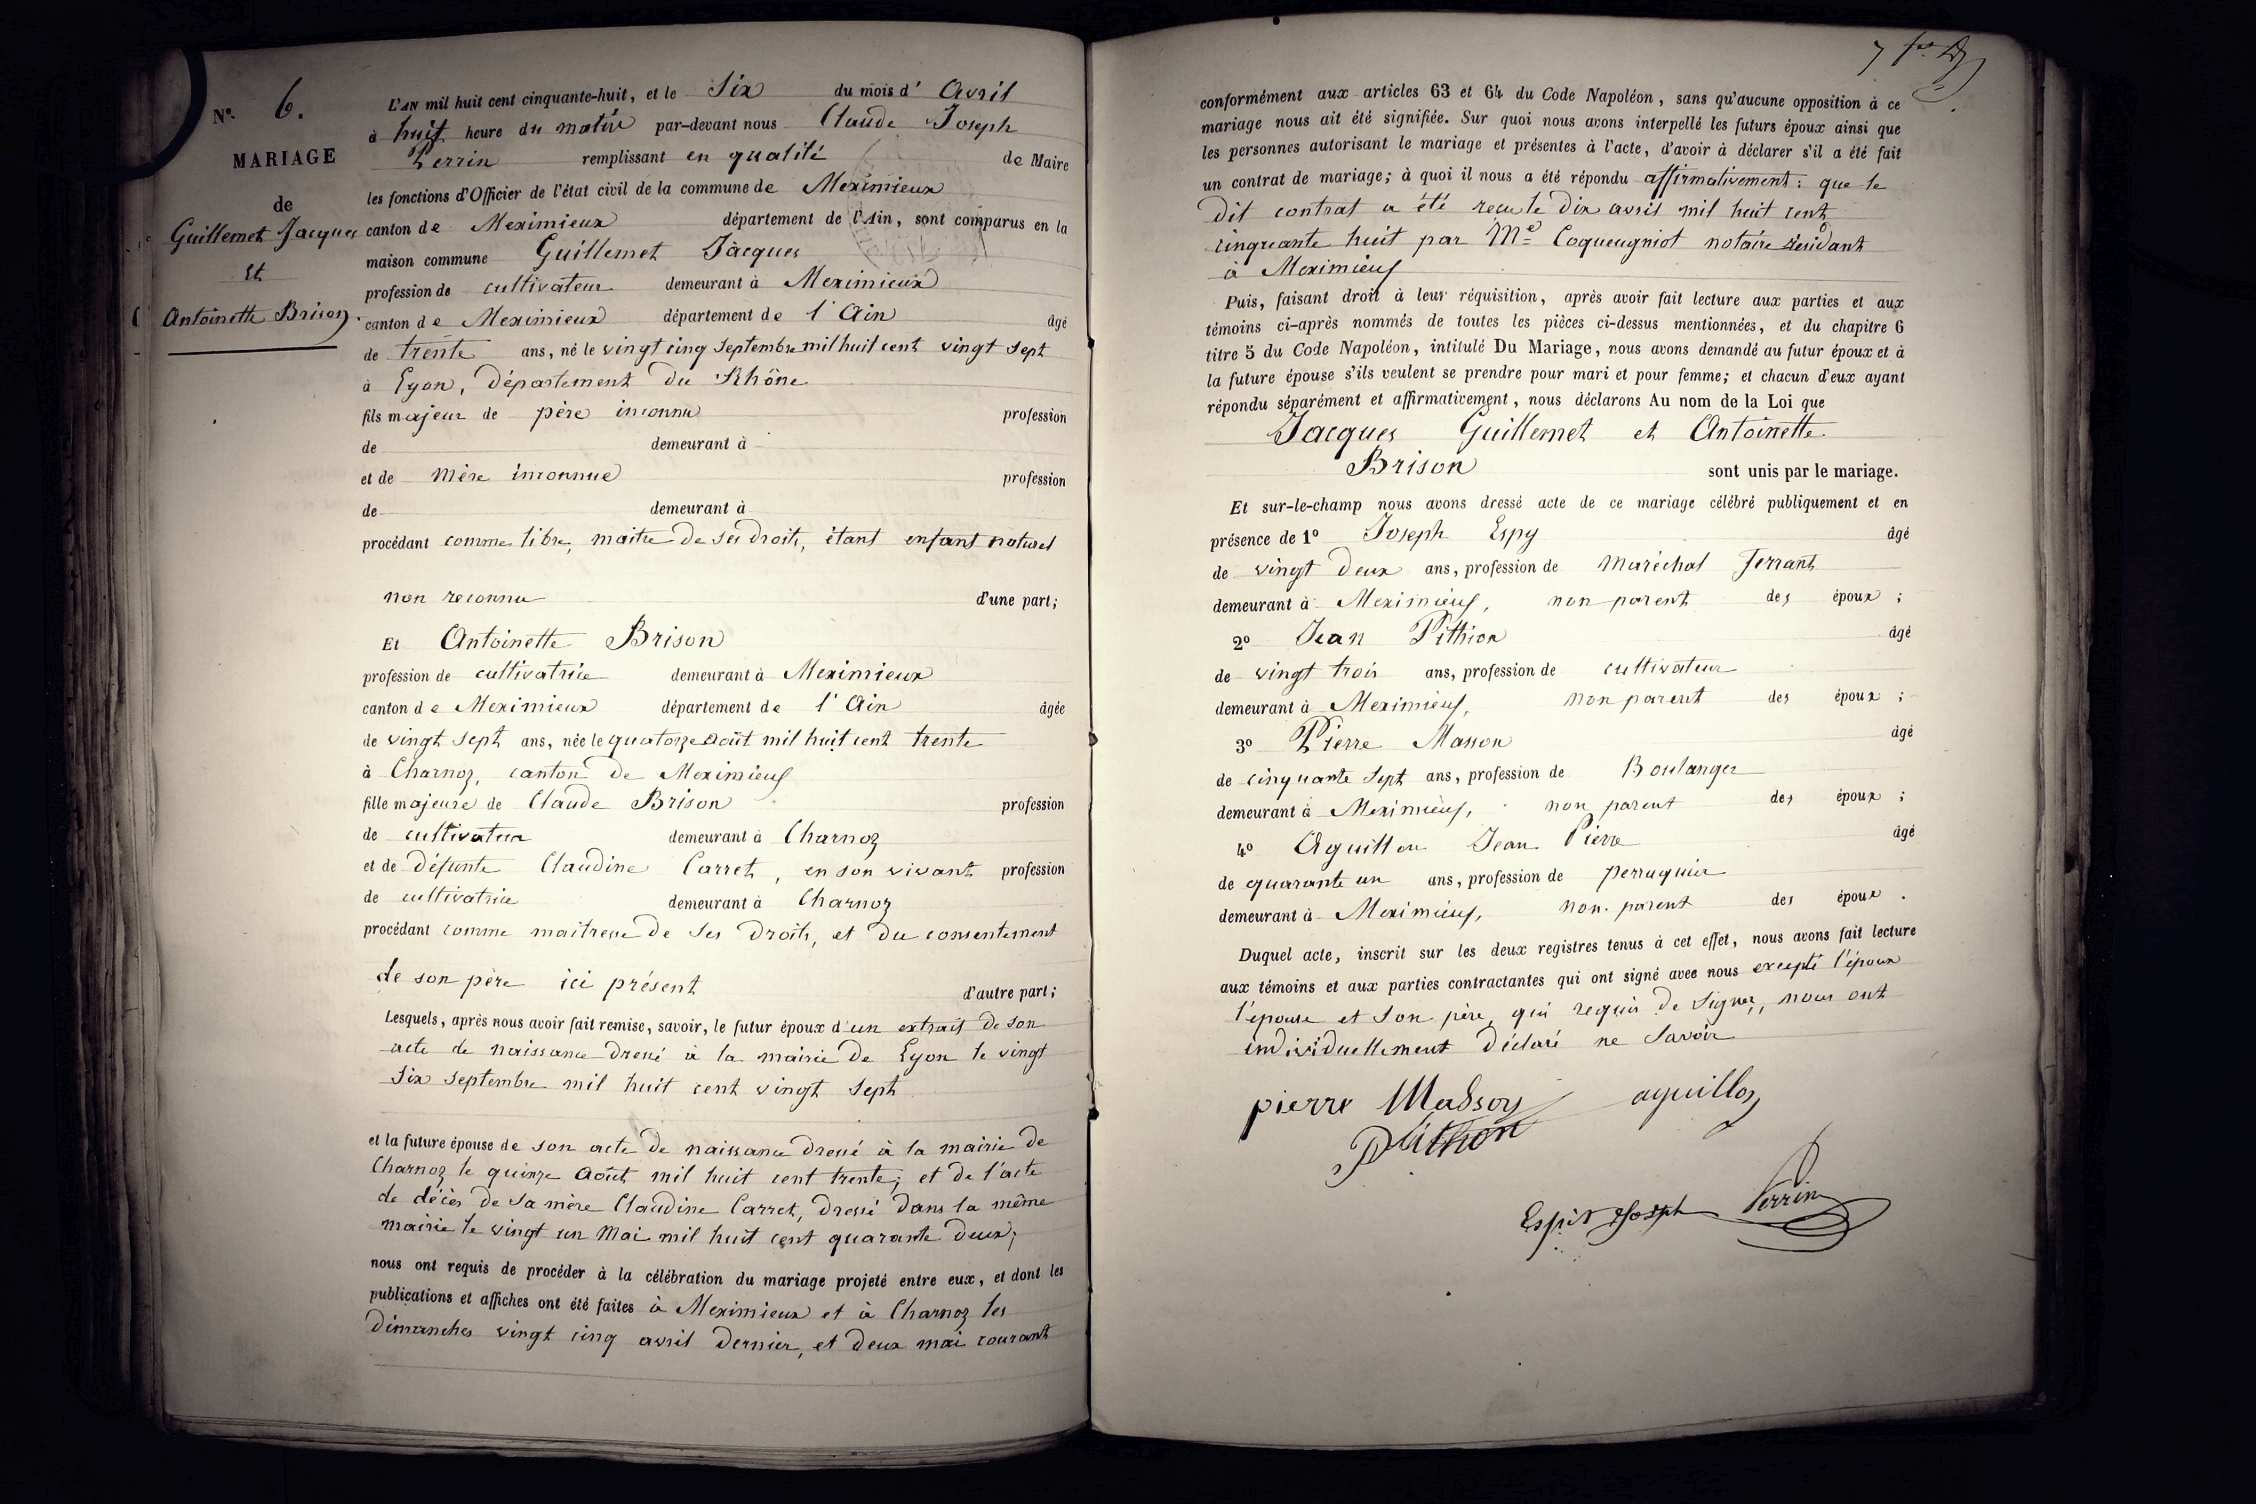 N°. 6.
MARIAGE
de
Guillemet Jacques
et
Antoinette Brison.
L'AN mil huit cent cinquante-huit, et le Six du mois d' Avril
à huit heure du matin par-devant nous Claude Joseph
Perrin remplissant en qualité de Maire
les fonctions d'Officier de l'état civil de la commune de Meximieux
canton de Meximieux département de l'Ain, sont comparus en la
maison commune Guillemet Jacques
profession de cultivateur demeurant à Meximieux
canton de Meximieux département de l'Ain âgé
de trente ans, né le vingt cinq Septembre mil huit cent vingt sept
à Lyon, Département du Rhône
fils majeur de père inconnu profession
de demeurant à
et de mère inconnue profession
de demeurant à
procédant comme libre, maitre de ses droits, étant enfant naturel
non reconnu d'une part;
Et Antoinette Brison
profession de cultivatrice demeurant à Meximieux
canton de Meximieux département de l'Ain âgée
de vingt sept ans, née le quatorze août mil huit cent trente
à Charnoz, canton de Meximieux
fille majeure de Claude Brison profession
de cultivateur demeurant à Charnoz
et de défunte Claudine Carret, en son vivant profession
de cultivatrice demeurant à Charnoz
procédant comme maitresse de ses droits, et du consentement
de son père ici présent d'autre part;
Lesquels, après nous avoir fait remise, savoir, le futur époux d'un extrait de son
acte de naissance dressé à la mairie de Lyon le vingt
six septembre mil huit cent vingt sept
et la future épouse de son acte de naissance dressé à la mairie de
Charnoz le quinze août mil huit cent trente; et de l'acte
de décès de sa mère Claudine Carret, dressé dans la même
mairie le vingt un Mai mil huit cent quarante deux;
nous ont requis de procéder à la célébration du mariage projeté entre eux, et dont les
publications et affiches ont été faites à Meximieux et à Charnoz les
dimanches vingt cinq avril dernier, et deux mai courant
7
conformément aux articles 63 et 64 du Code Napoléon, sans qu'aucune opposition à ce
mariage nous ait été signifiée. Sur quoi nous avons interpellé les futurs époux ainsi que
les personnes autorisant le mariage et présentes à l'acte, d'avoir à déclarer s'il a été fait
un contrat de mariage; à quoi il nous a été répondu affirmativement: que le
dit contrat a été recu le dix avril mil huit cent
cinquante huit par Me Coqueugniot notaire résidant
à Meximieux
Puis, faisant droit à leur réquisition, après avoir fait lecture aux parties et aux
témoins ci-après nommés de toutes les pièces ci-dessus mentionnées, et du chapitre 6
titre 5 du Code Napoléon, intitulé Du Mariage, nous avons demandé au futur époux et à
la future épouse s'ils veulent se prendre pour mari et pour femme; et chacun d'eux ayant
répondu séparément et affirmativement, nous déclarons Au nom de la Loi que
Jacques Guillemet et Antoinette
Brison sont unis par le mariage.
Et sur-le-champ nous avons dressé acte de ce mariage célébré publiquement et en
présence de 1° Joseph Espy âgé
de vingt deux ans, profession de Maréchal ferrant
demeurant à Meximieux, non parent des époux;
2° Jean Pithion âgé
de vingt trois ans, profession de cultivateur
demeurant à Meximieux, non parent des époux;
3° Pierre Masson âgé
de cinquante sept ans, profession de Boulanger
demeurant à Meximieux, non parent des époux;
4° Aguillon Jean Pierre âgé
de quarante un ans, profession de perruquier
demeurant à Meximieux, non parent des époux.
Duquel acte, inscrit sur les deux registres tenus à cet effet, nous avons fait lecture
aux témoins et aux parties contractantes qui ont signé avec nous excepté l'époux
l'épouse et son père, qui requis de signer, nous ont
individuellement déclaré ne savoir
pierre Masson aguillon
Pithion
Espit Joseph Perrin